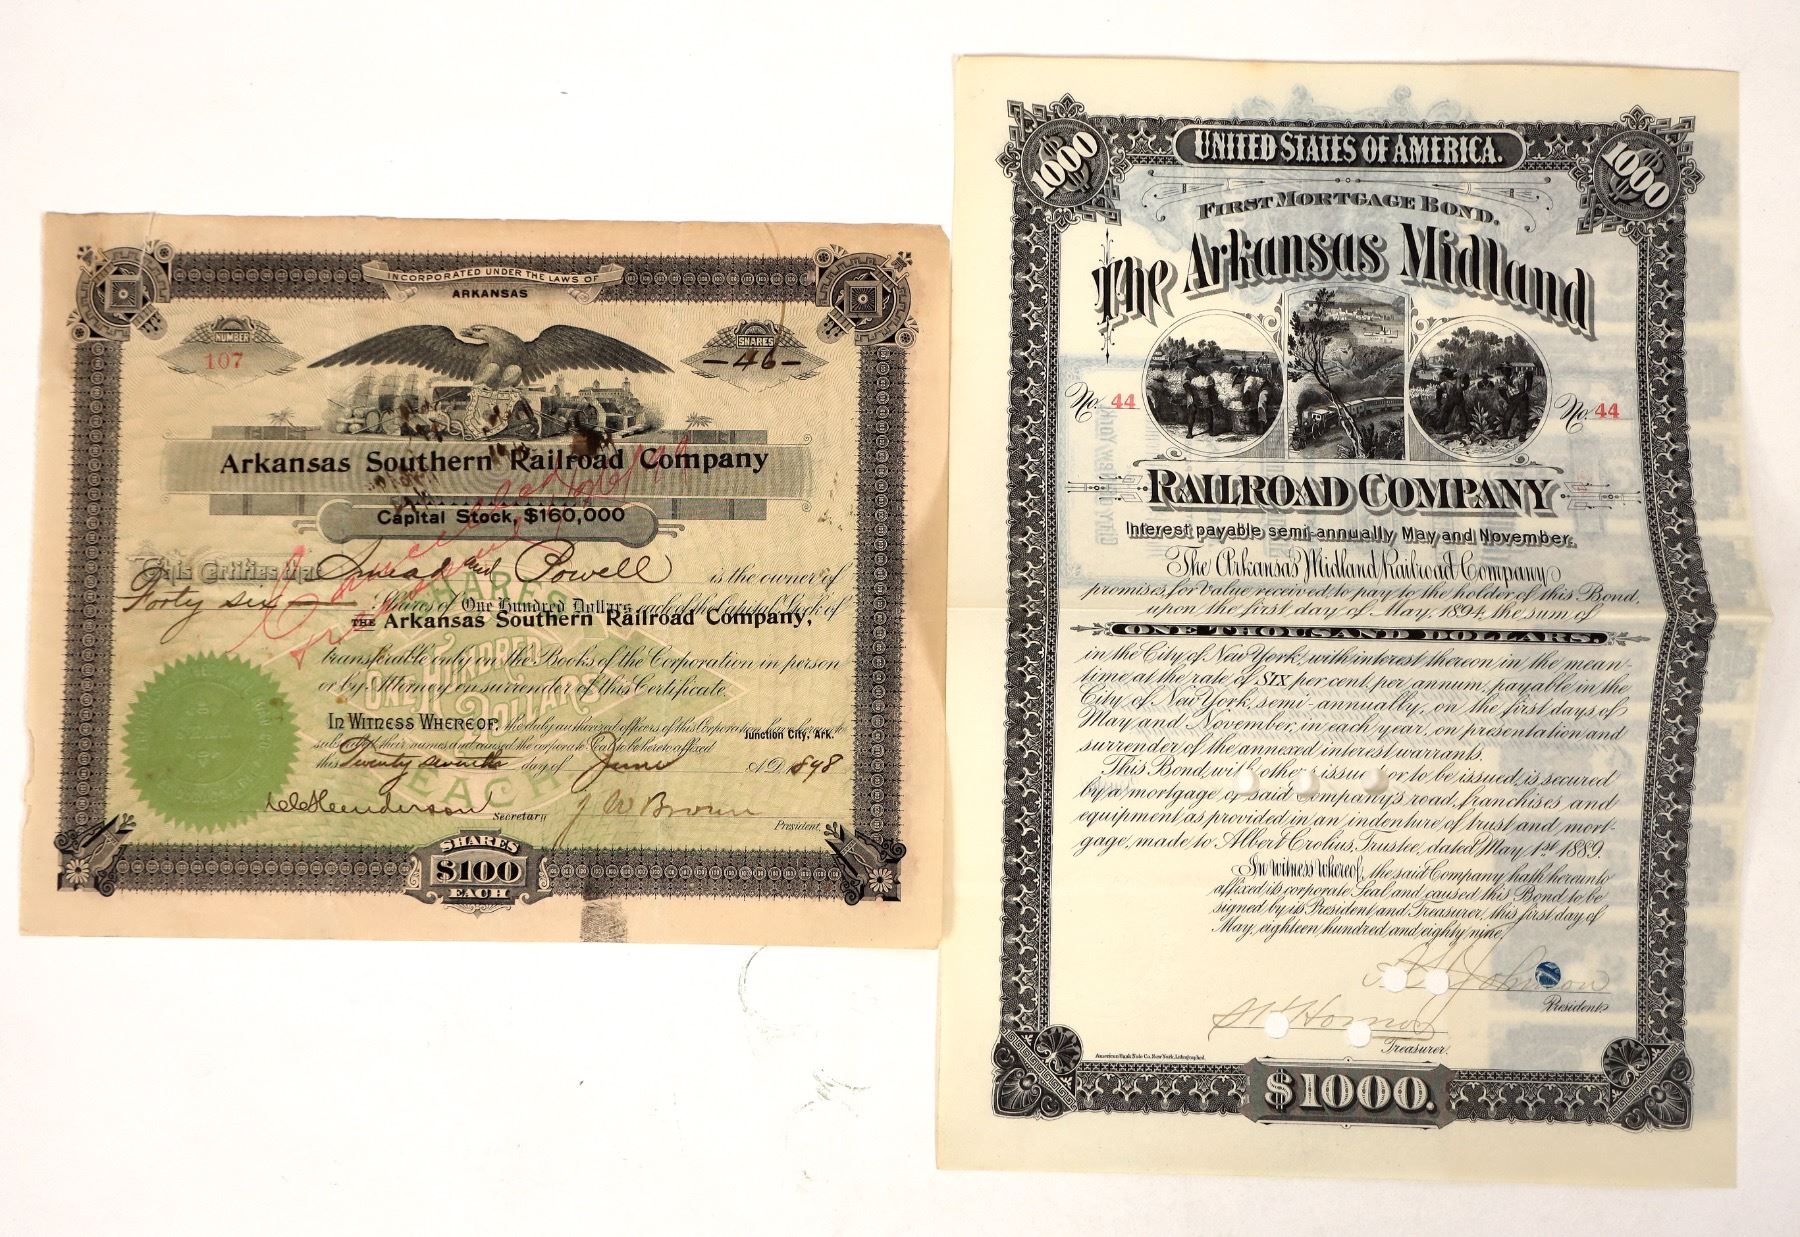 INCORPORATED UNDER THE LAWS OF
ARKANSAS
NUMBER
107
SHARES
—46—
Arkansas Southern Railroad Company
Capital Stock, $160,000
This Certifies that Snead and Powell is the owner of
Forty six Shares of One Hundred Dollars each of the Capital Stock of
THE Arkansas Southern Railroad Company,
transferable only on the Books of the Corporation in person
or by Attorney on surrender of this Certificate.
SHARES
ONE HUNDRED
DOLLARS
EACH
IN WITNESS WHEREOF, the duly authorized officers of this Corporation have hereunto
subscribed their names and caused the corporate Seal to be hereto affixed
Junction City, Ark.
this Twenty seventh day of June A.D. 1898
Secretary
J W Brown
President.
SHARES
$100
EACH
Cancelled
UNITED STATES OF AMERICA.
$1000
$1000
FIRST MORTGAGE BOND.
The Arkansas Midland
No. 44
No. 44
RAILROAD COMPANY
Interest payable semi-annually May and November.
The Arkansas Midland Railroad Company
promises, for value received, to pay to the holder of this Bond,
upon the first day of May, 1894, the sum of
ONE THOUSAND DOLLARS,
in the City of New York, with interest thereon in the mean-
time, at the rate of SIX per cent. per annum, payable in the
City of New York, semi-annually, on the first days of
May and November, in each year, on presentation and
surrender of the annexed interest warrants.
This Bond, with others issued or to be issued, is secured
by a mortgage of said Company's road, franchises and
equipment as provided in an indenture of trust and mort-
gage, made to Albert Crolius, Trustee, dated May 1st 1889.
In witness whereof, the said Company hath hereunto
affixed its corporate Seal and caused this Bond to be
signed by its President and Treasurer, this first day of
May, eighteen hundred and eighty nine.
Johnson
President
Treasurer.
American Bank Note Co. New York, Lithographed.
$1000.